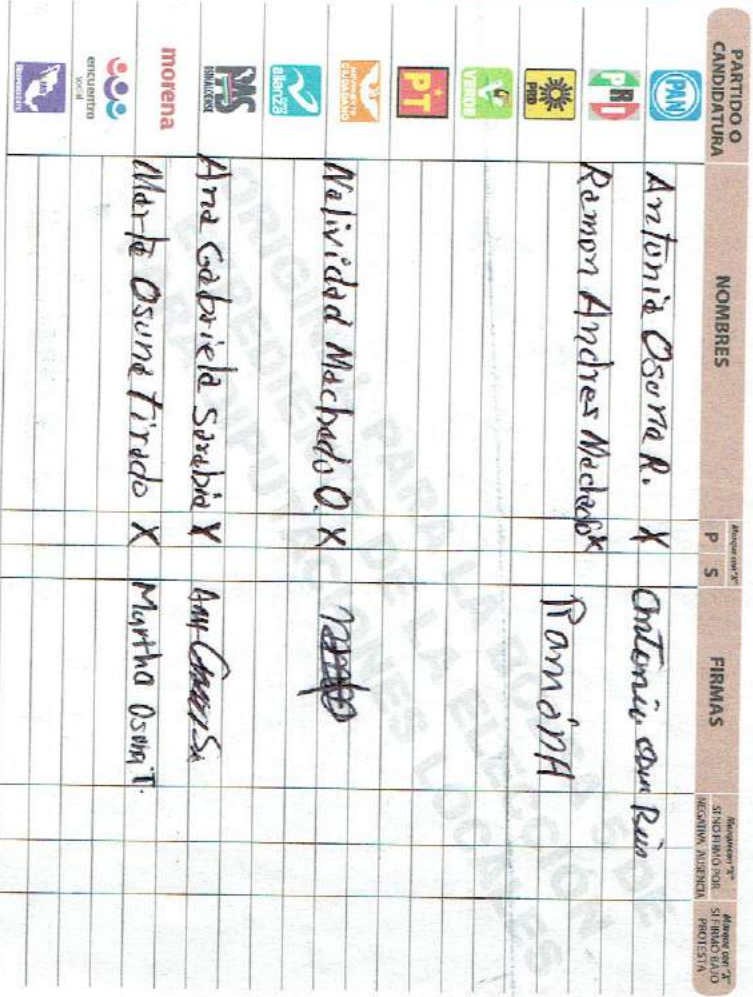 PARTIDO O CANDIDATURA
NOMBRES
Marque con "X"
P S
FIRMAS
Marque con "X"
SI NO FIRMÓ POR
NEGATIVA AUSENCIA
Marque con "X"
SI FIRMÓ BAJO
PROTESTA
PAN
Antonia Osuna R. X
PRI
Ramon Andres Machado X
Ramón A
PRD
VERDE
PT
MOVIMIENTO CIUDADANO
Natividad Machado O. X
nueva alianza
PAS
SINALOENSE
Ana Gabriela Sarabia X
morena
Marta Osuna Tirado X
Martha Osuna T.
encuentro social
ORIGINAL PARA LA BOLSA DE
EXPEDIENTE DE LA ELECCIÓN
PARA DIPUTACIONES LOCALES